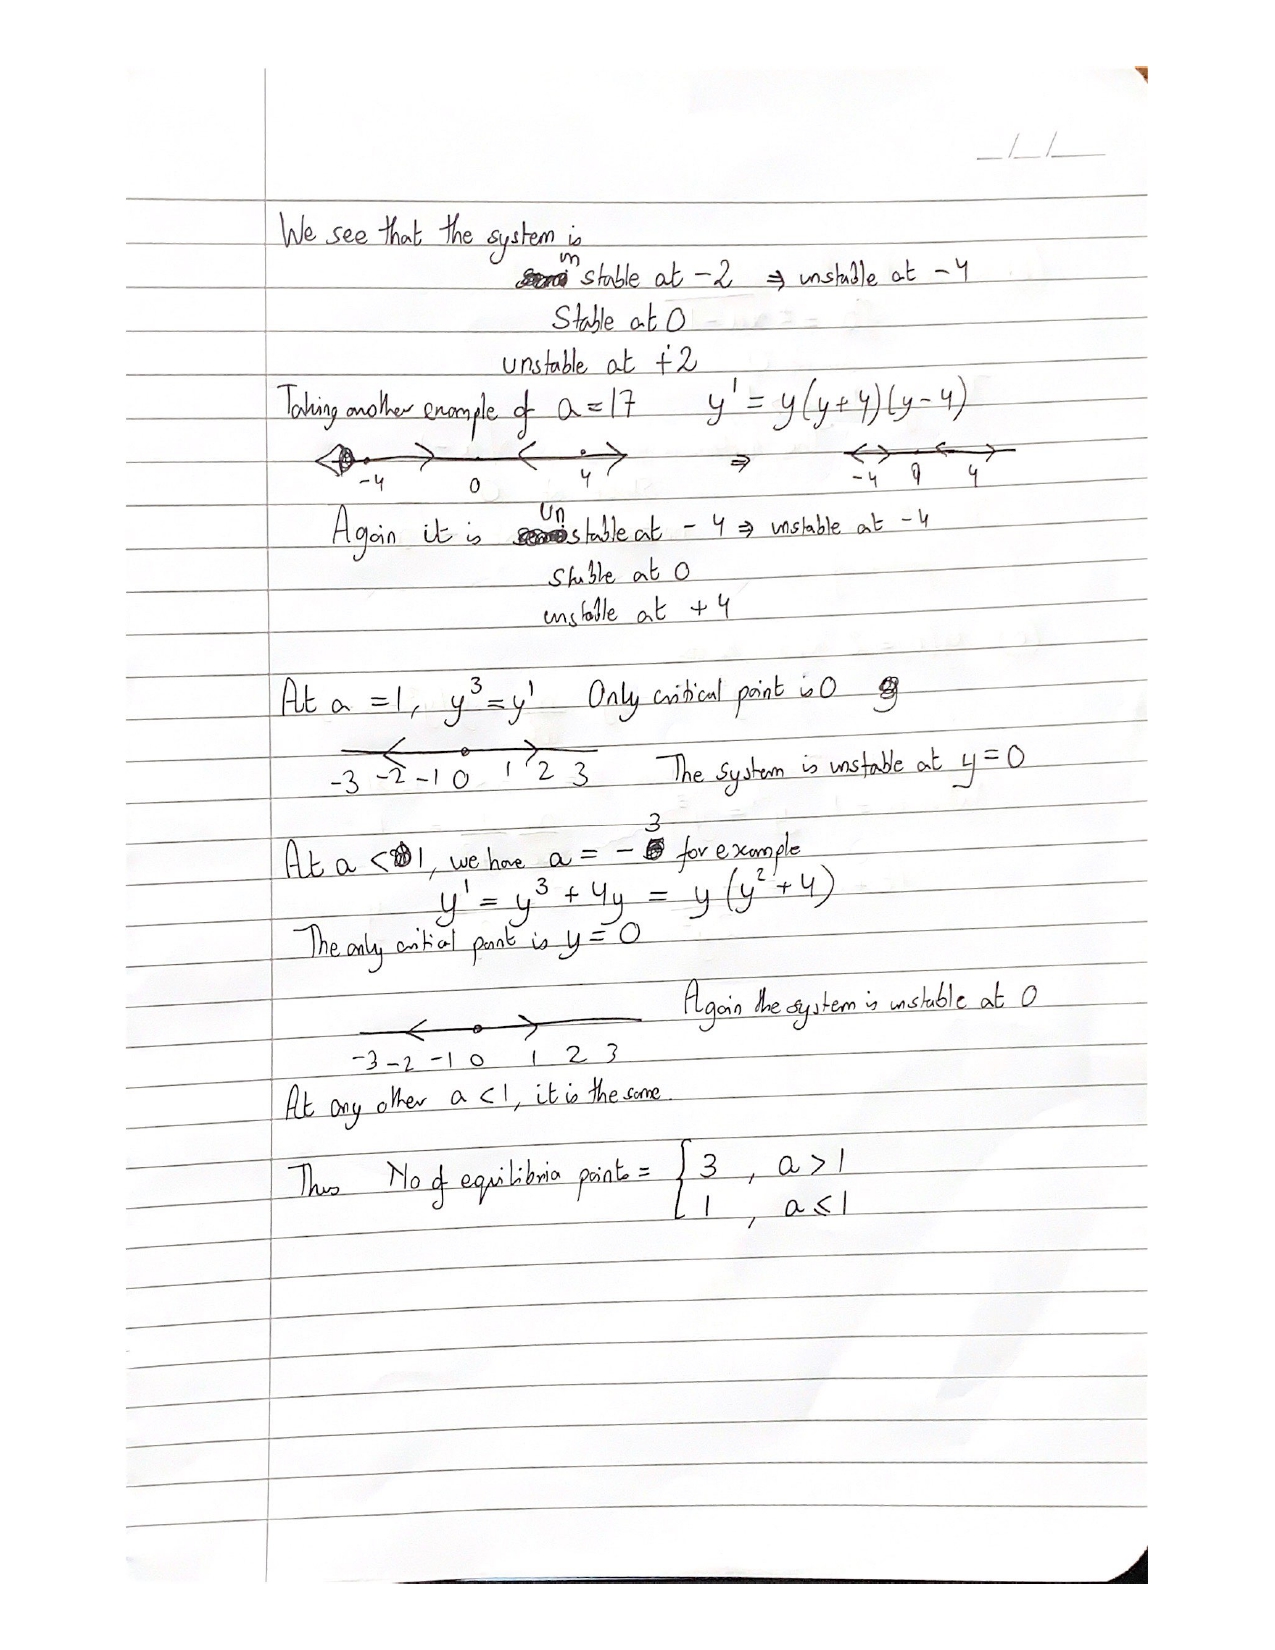 _/_/_
We see that the system is
unstable at -2 ⇒ unstable at -4
Stable at 0
unstable at +2
Taking another example of a = 17 y' = y(y+4)(y-4)
-4 0 4 ⇒ -4 0 4
Again it is Unstable at -4 ⇒ unstable at -4
stable at 0
unstable at +4
At a = 1, y³ = y' Only critical point is 0
-3 -2 -1 0 1 2 3 The system is unstable at y = 0
At a < 1, we have a = -3 for example
y' = y³ + 4y = y(y² + 4)
The only critical point is y = 0
Again the system is unstable at 0
-3 -2 -1 0 1 2 3
At any other a < 1, it is the same.
Thus No of equilibria points = { 3 , a > 1
1 , a ≤ 1